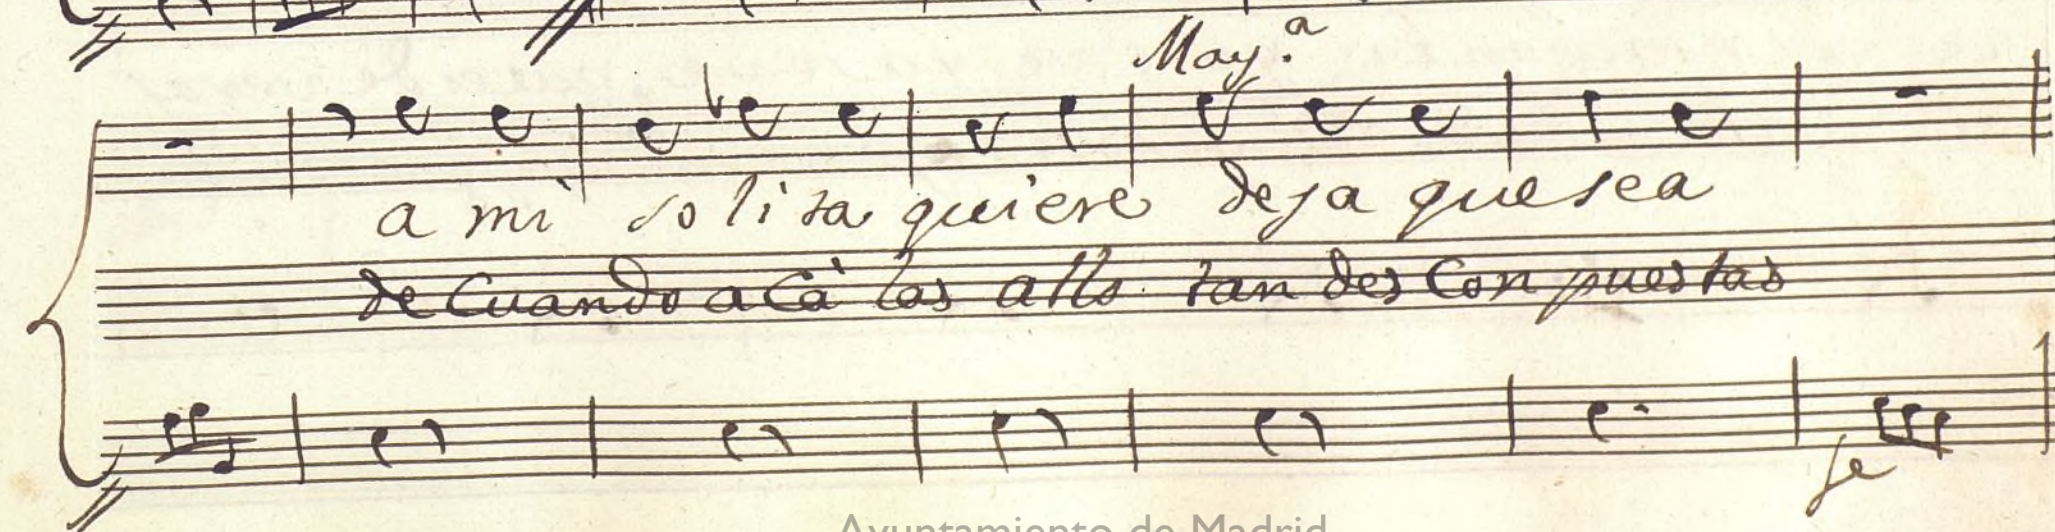 May.ª
a mi solita quiere deja que sea
de cuando acà las dos tan des Conpuestas
fe
Ayuntamiento de Madrid